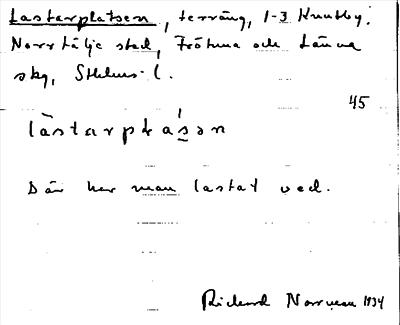 Lastarplatsen, terräng, 1-3 Knutby.
Norrtälje stad, Frötuna och Länna
skg, Sthlms l.
45
làstarplása̱n
Där har man lastat ved.
Rickard Norrman 1934